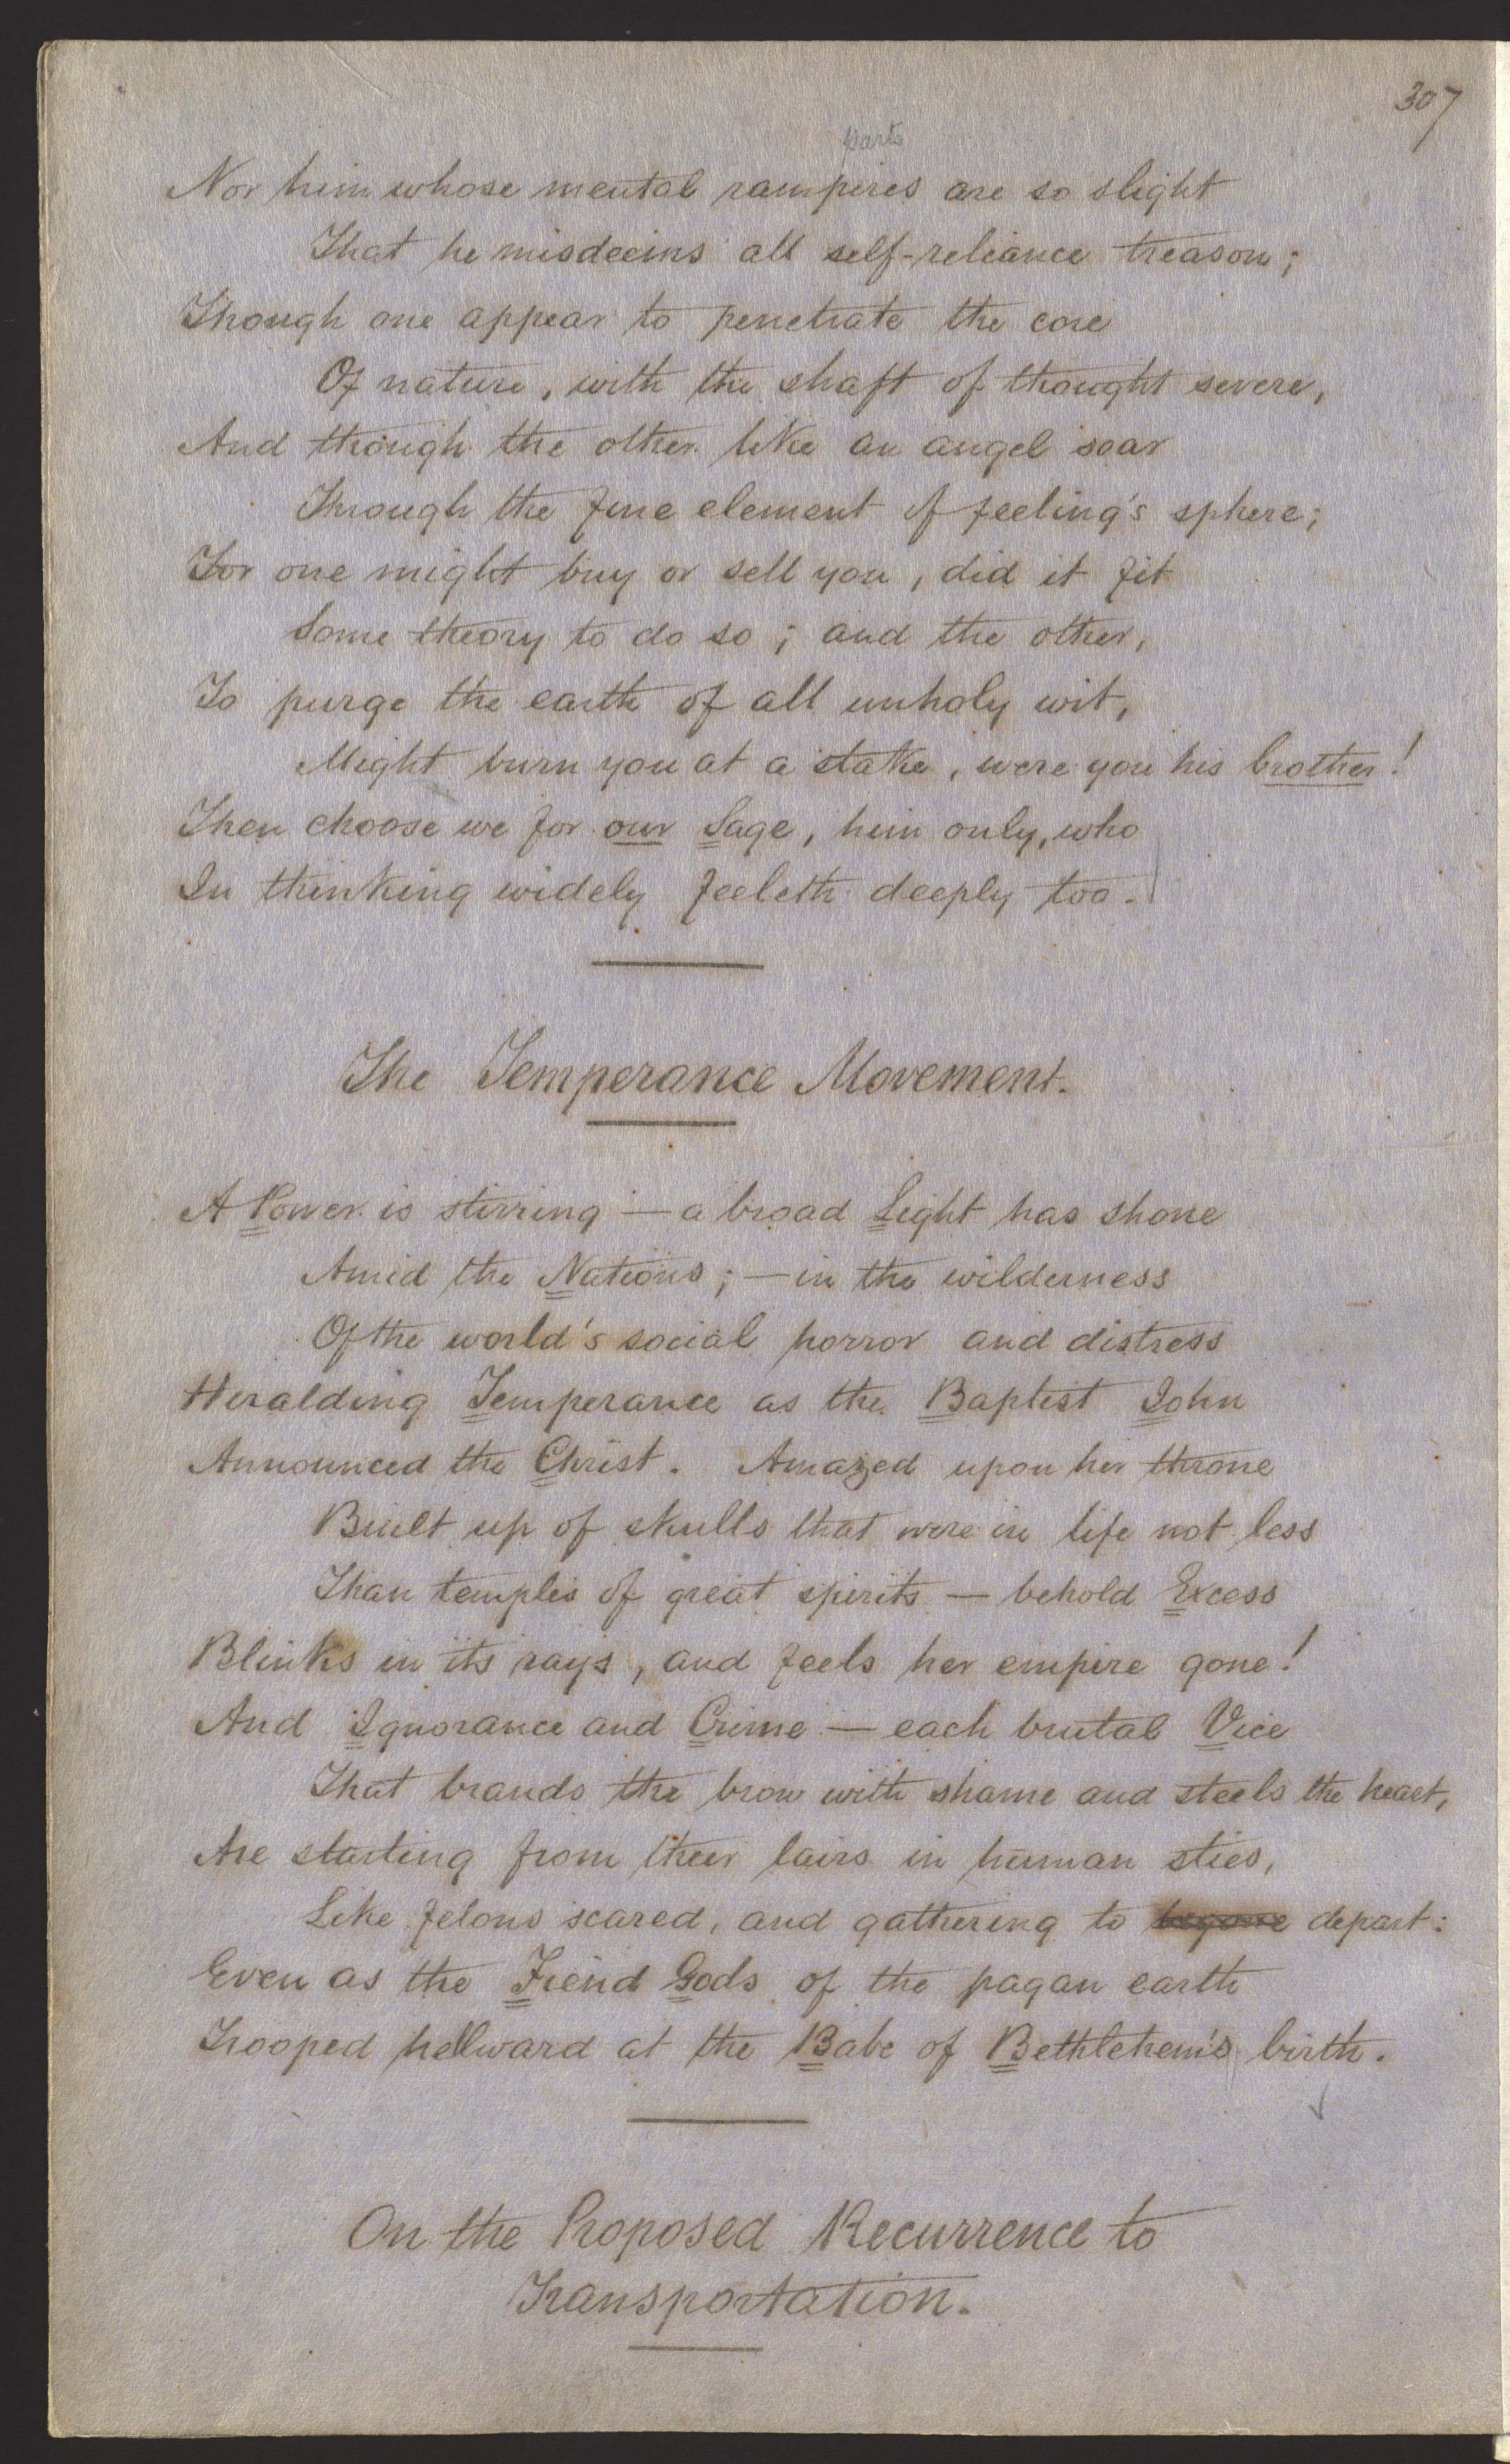 307
parts
Nor him whose mental rampires are so slight
That he misdeems all self-reliance treason;
Though one appear to penetrate the core
Of nature, with the shaft of thought severe,
And though the other like an angel soar
Through the fine element of feeling's sphere;
For one might buy or sell you, did it fit
Some theory to do so; and the other,
To purge the earth of all unholy wit,
Might burn you at a stake, were you his brother!
Then choose we for our Sage, him only, who
In thinking widely feeleth deeply too.
The Temperance Movement.
A Power is stirring — a broad Light has shone
Amid the Nations; — in the wilderness
Of the world's social horror and distress
Heralding Temperance as the Baptist John
Announced the Christ. Amazed upon her throne
Built up of skulls that were in life not less
Than temples of great spirits — behold Excess
Blinks in its rays, and feels her empire gone!
And Ignorance and Crime — each brutal Vice
That brands the brow with shame and steels the heart,
Are starting from their lairs in human sties,
Like felons scared, and gathering to begone depart:
Even as the Fiend Gods of the pagan earth
Trooped hellward at the Babe of Bethlehem's birth.
On the Proposed Recurrence to
Transportation.